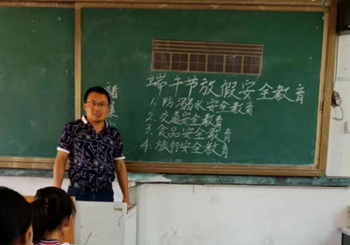 端午节放假安全教育
1.防溺水安全教育
2.交通安全教育
3.食品安全教育
4.旅行安全教育